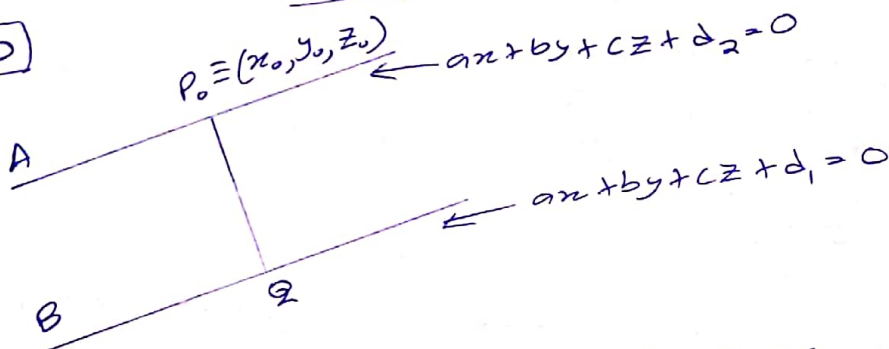 P₀ ≡ (x₀, y₀, z₀)
ax + by + cz + d₂ = 0
A
ax + by + cz + d₁ = 0
B
Q